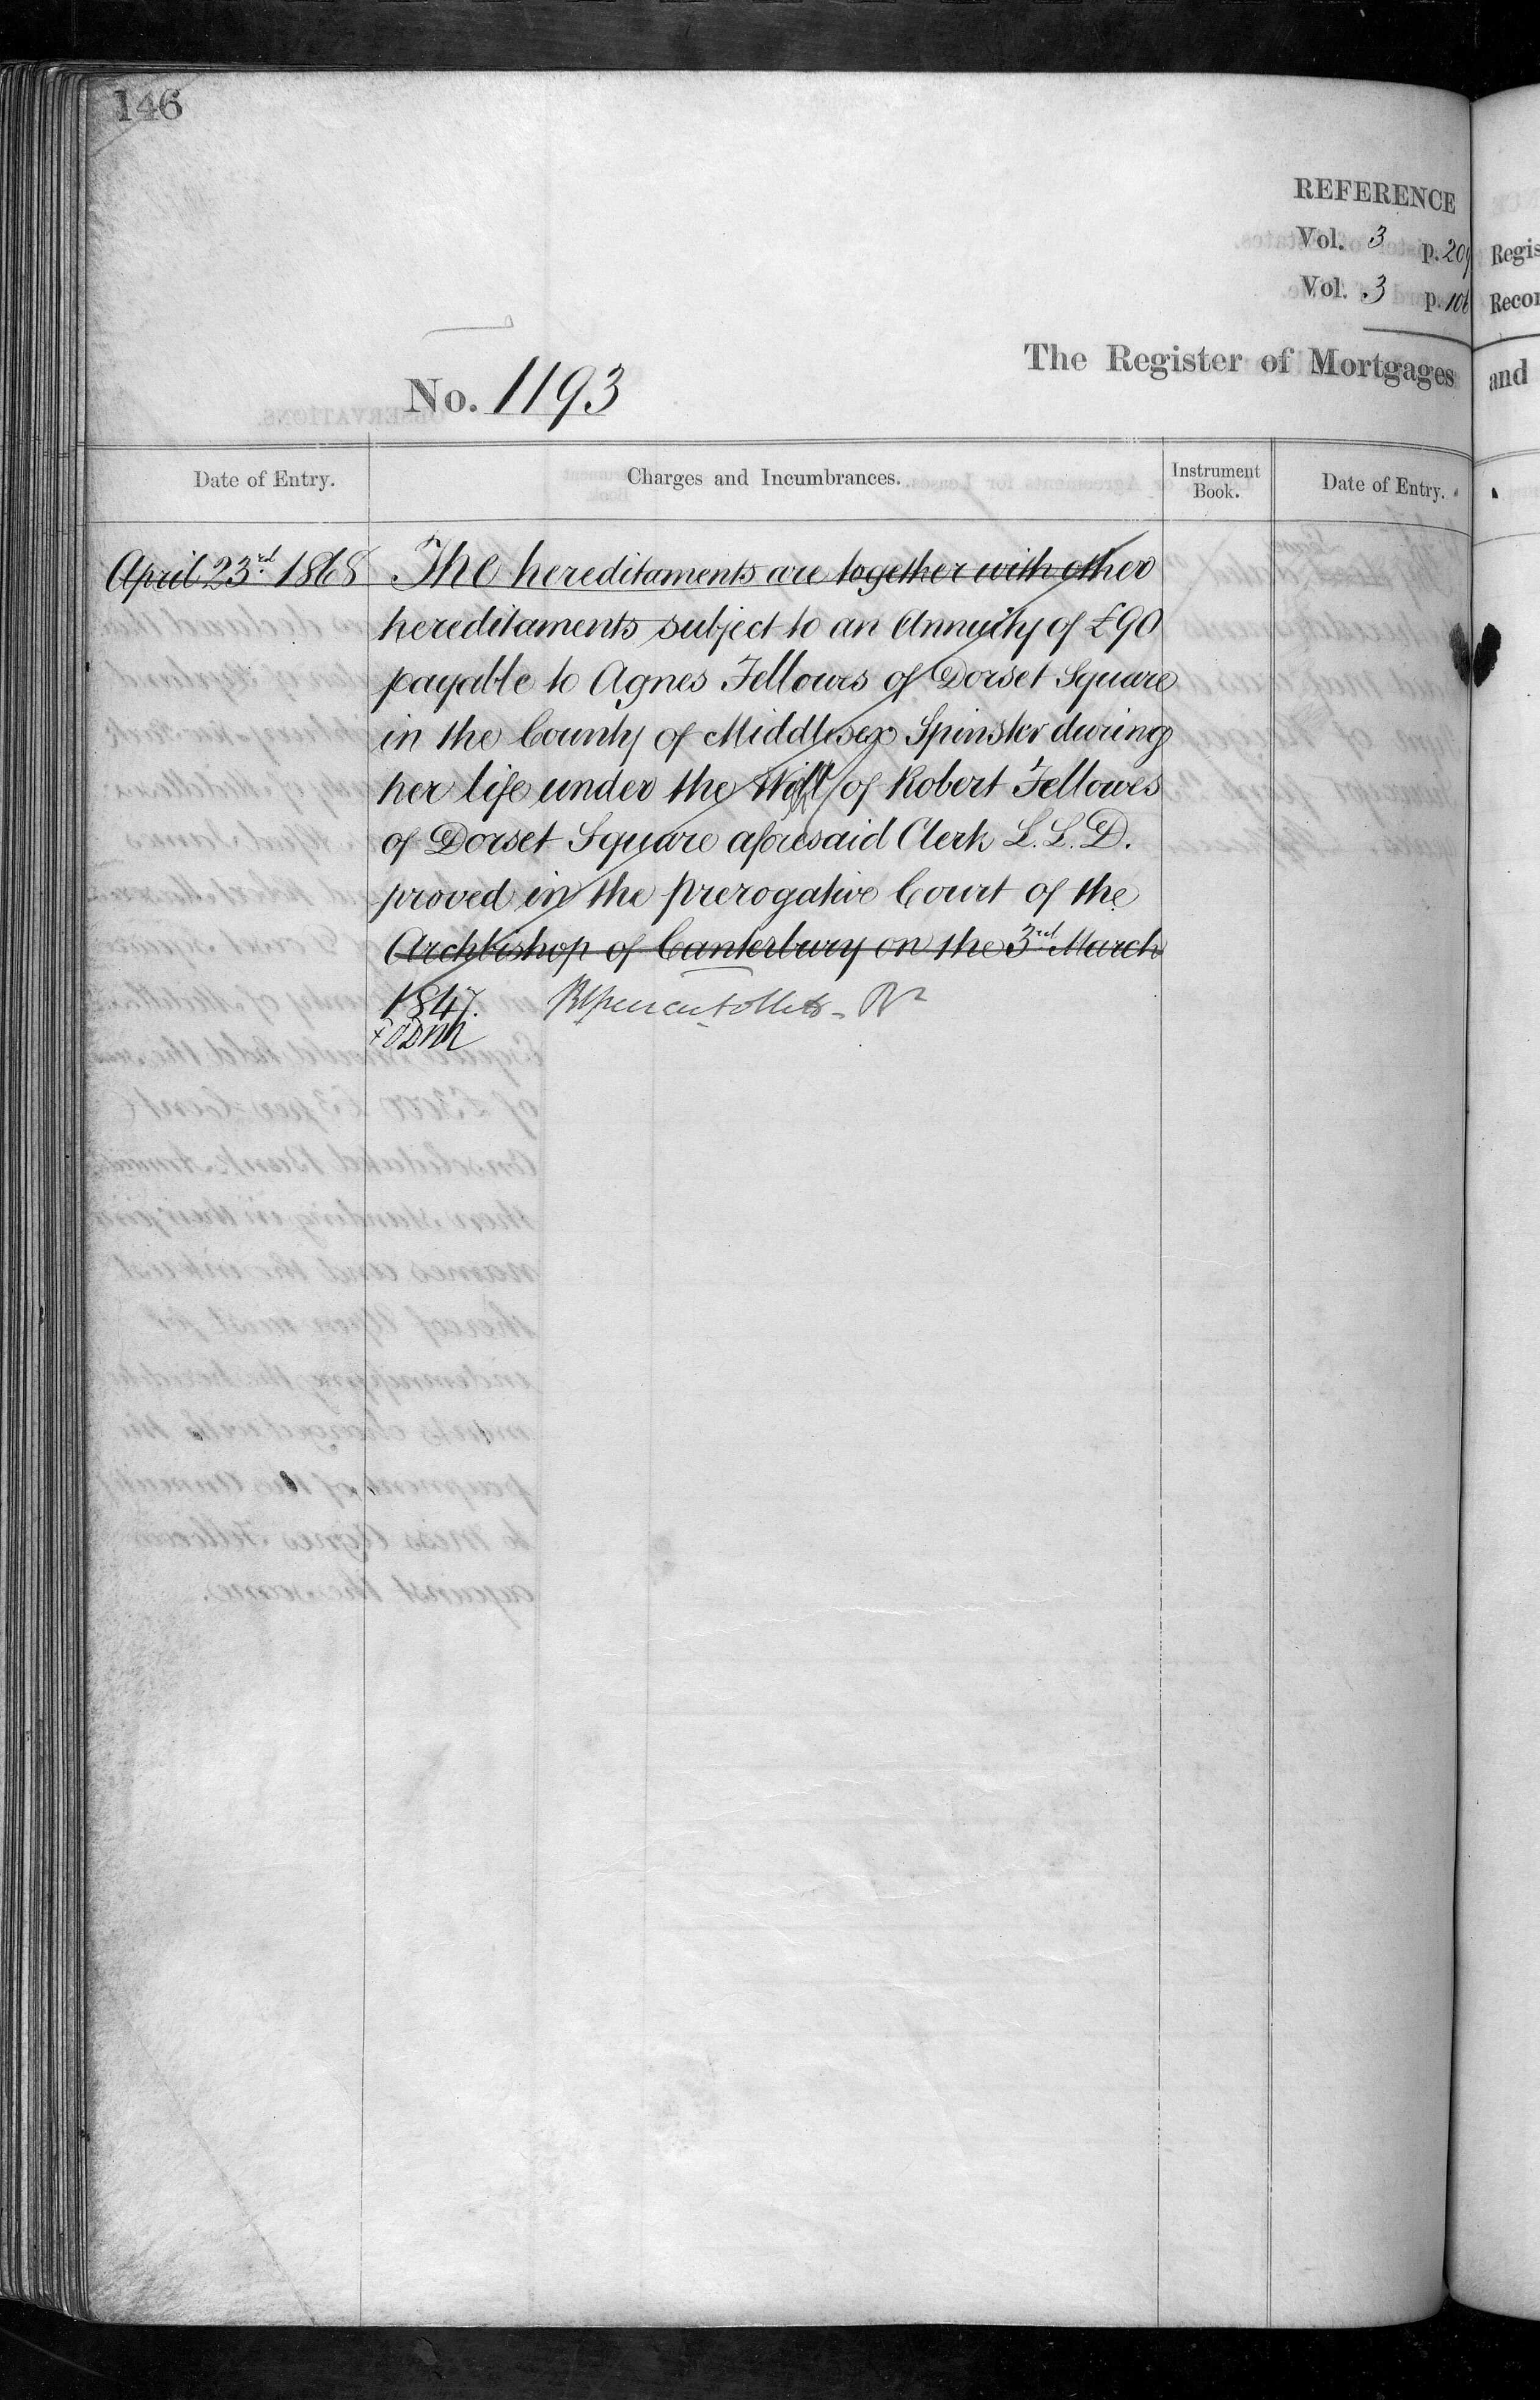 146
REFERENCE
Vol. 3 p. 209
Regis
Vol. 3 p. 106
Recor
No. 1193
The Register of Mortgages
and
Date of Entry.
Charges and Incumbrances.
Instrument Book.
Date of Entry.
April 23rd 1868
The hereditaments are together with other
hereditaments subject to an Annuity of £90
payable to Agnes Fellowes of Dorset Square
in the County of Middlesex Spinster during
her life under the Will of Robert Fellowes
of Dorset Square aforesaid Clerk L.L.D.
proved in the prerogative Court of the
Archbishop of Canterbury on the 3rd March
1847.